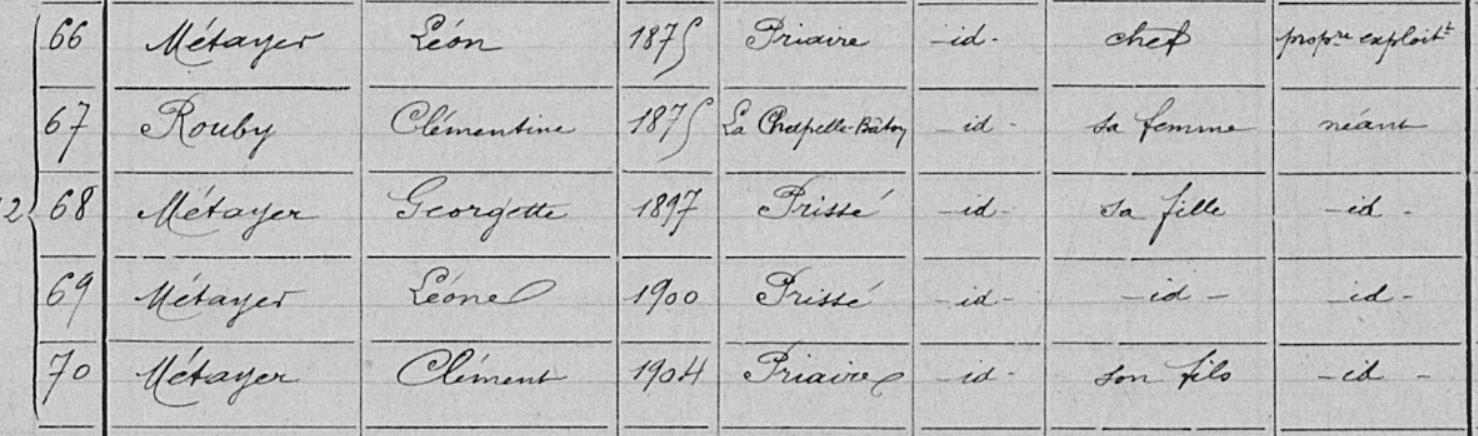 66 Métayer Léon 1875 Priaire -id- chef propre exploitt
67 Rouby Clémentine 1875 La Chapelle-Bâton -id- sa femme néant
2 68 Métayer Georgette 1897 Prissé -id- sa fille -id-
69 Métayer Léone 1900 Prissé -id- -id- -id-
70 Métayer Clément 1904 Priaire -id- son fils -id-